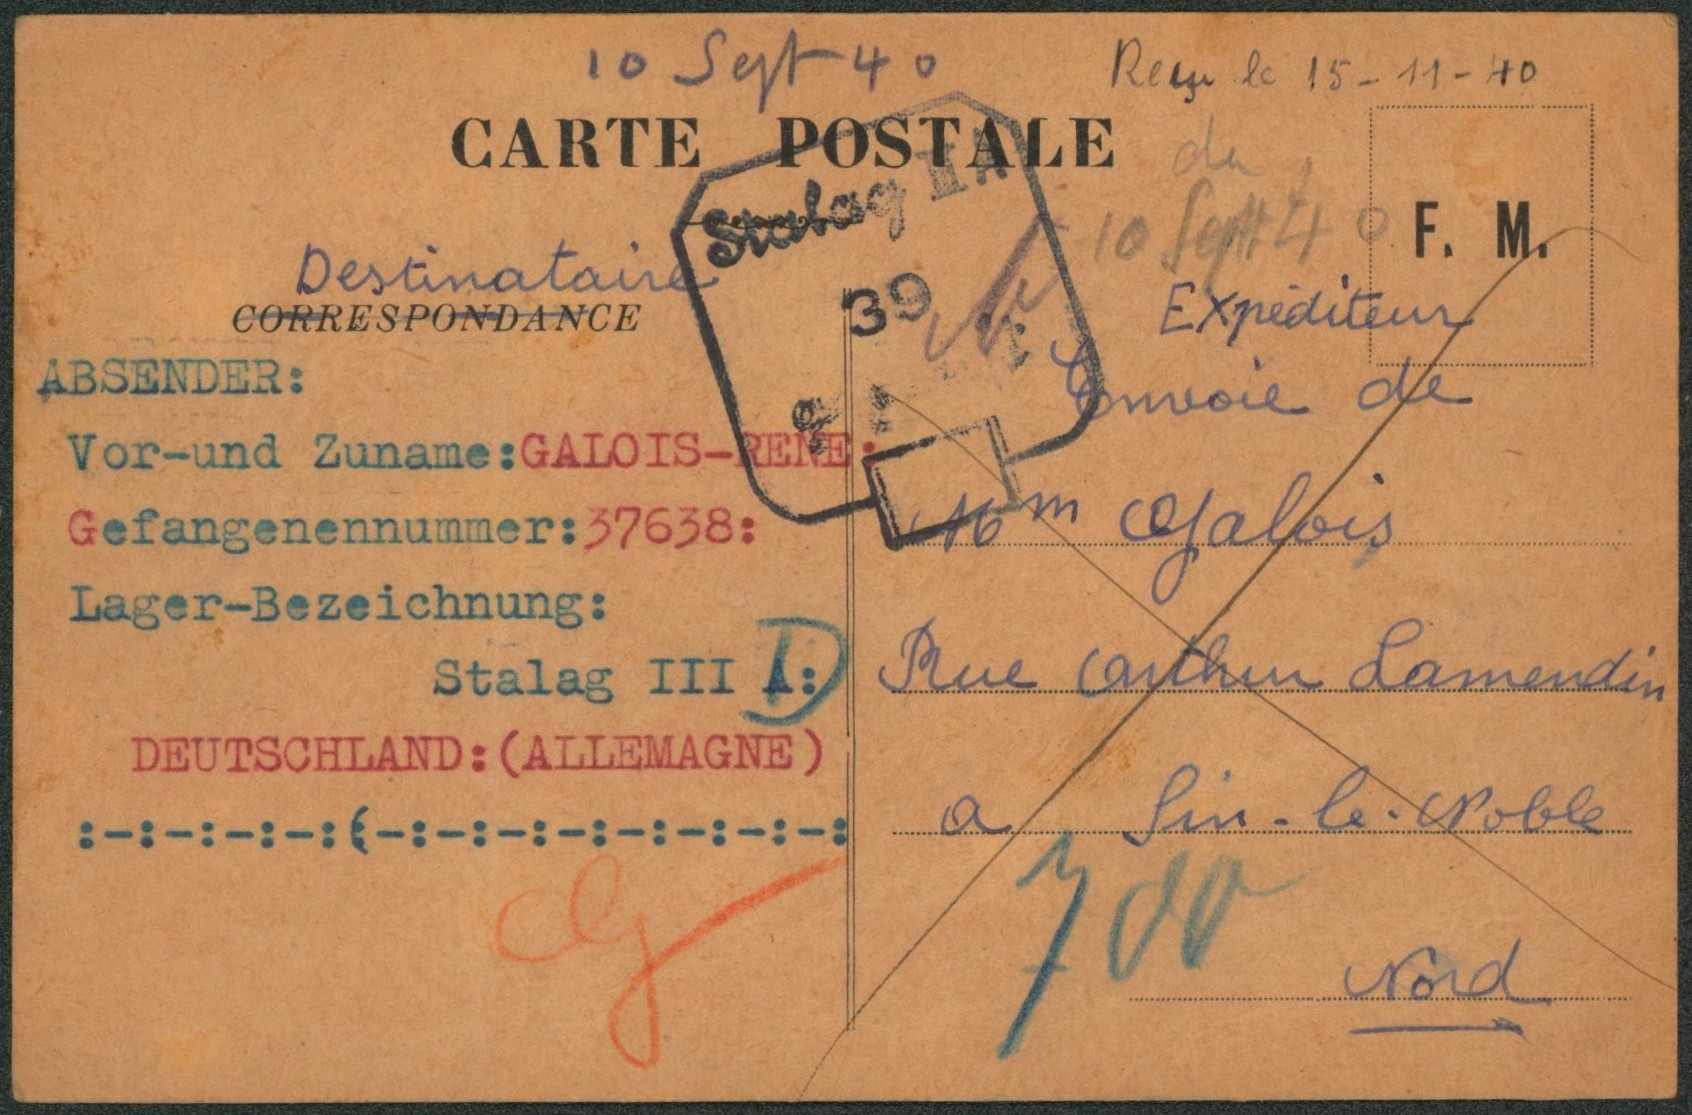 10 Sept 40
Reçu le 15-11-40
CARTE POSTALE
du
10 Sept 40
Stalag II A
39
F. M.
Destinataire
CORRESPONDANCE
Expéditeur
ABSENDER:
Envoie de
Vor-und Zuname:GALOIS-RENE:
Gefangenennummer:37638:
Mm Galois
Lager-Bezeichnung:
Stalag III A:
D
Rue Arthur Lamendin
DEUTSCHLAND:(ALLEMAGNE)
:-:-:-:-:(-:-:-:-:-:-:-:-:
a Sin-le-Noble
Nord